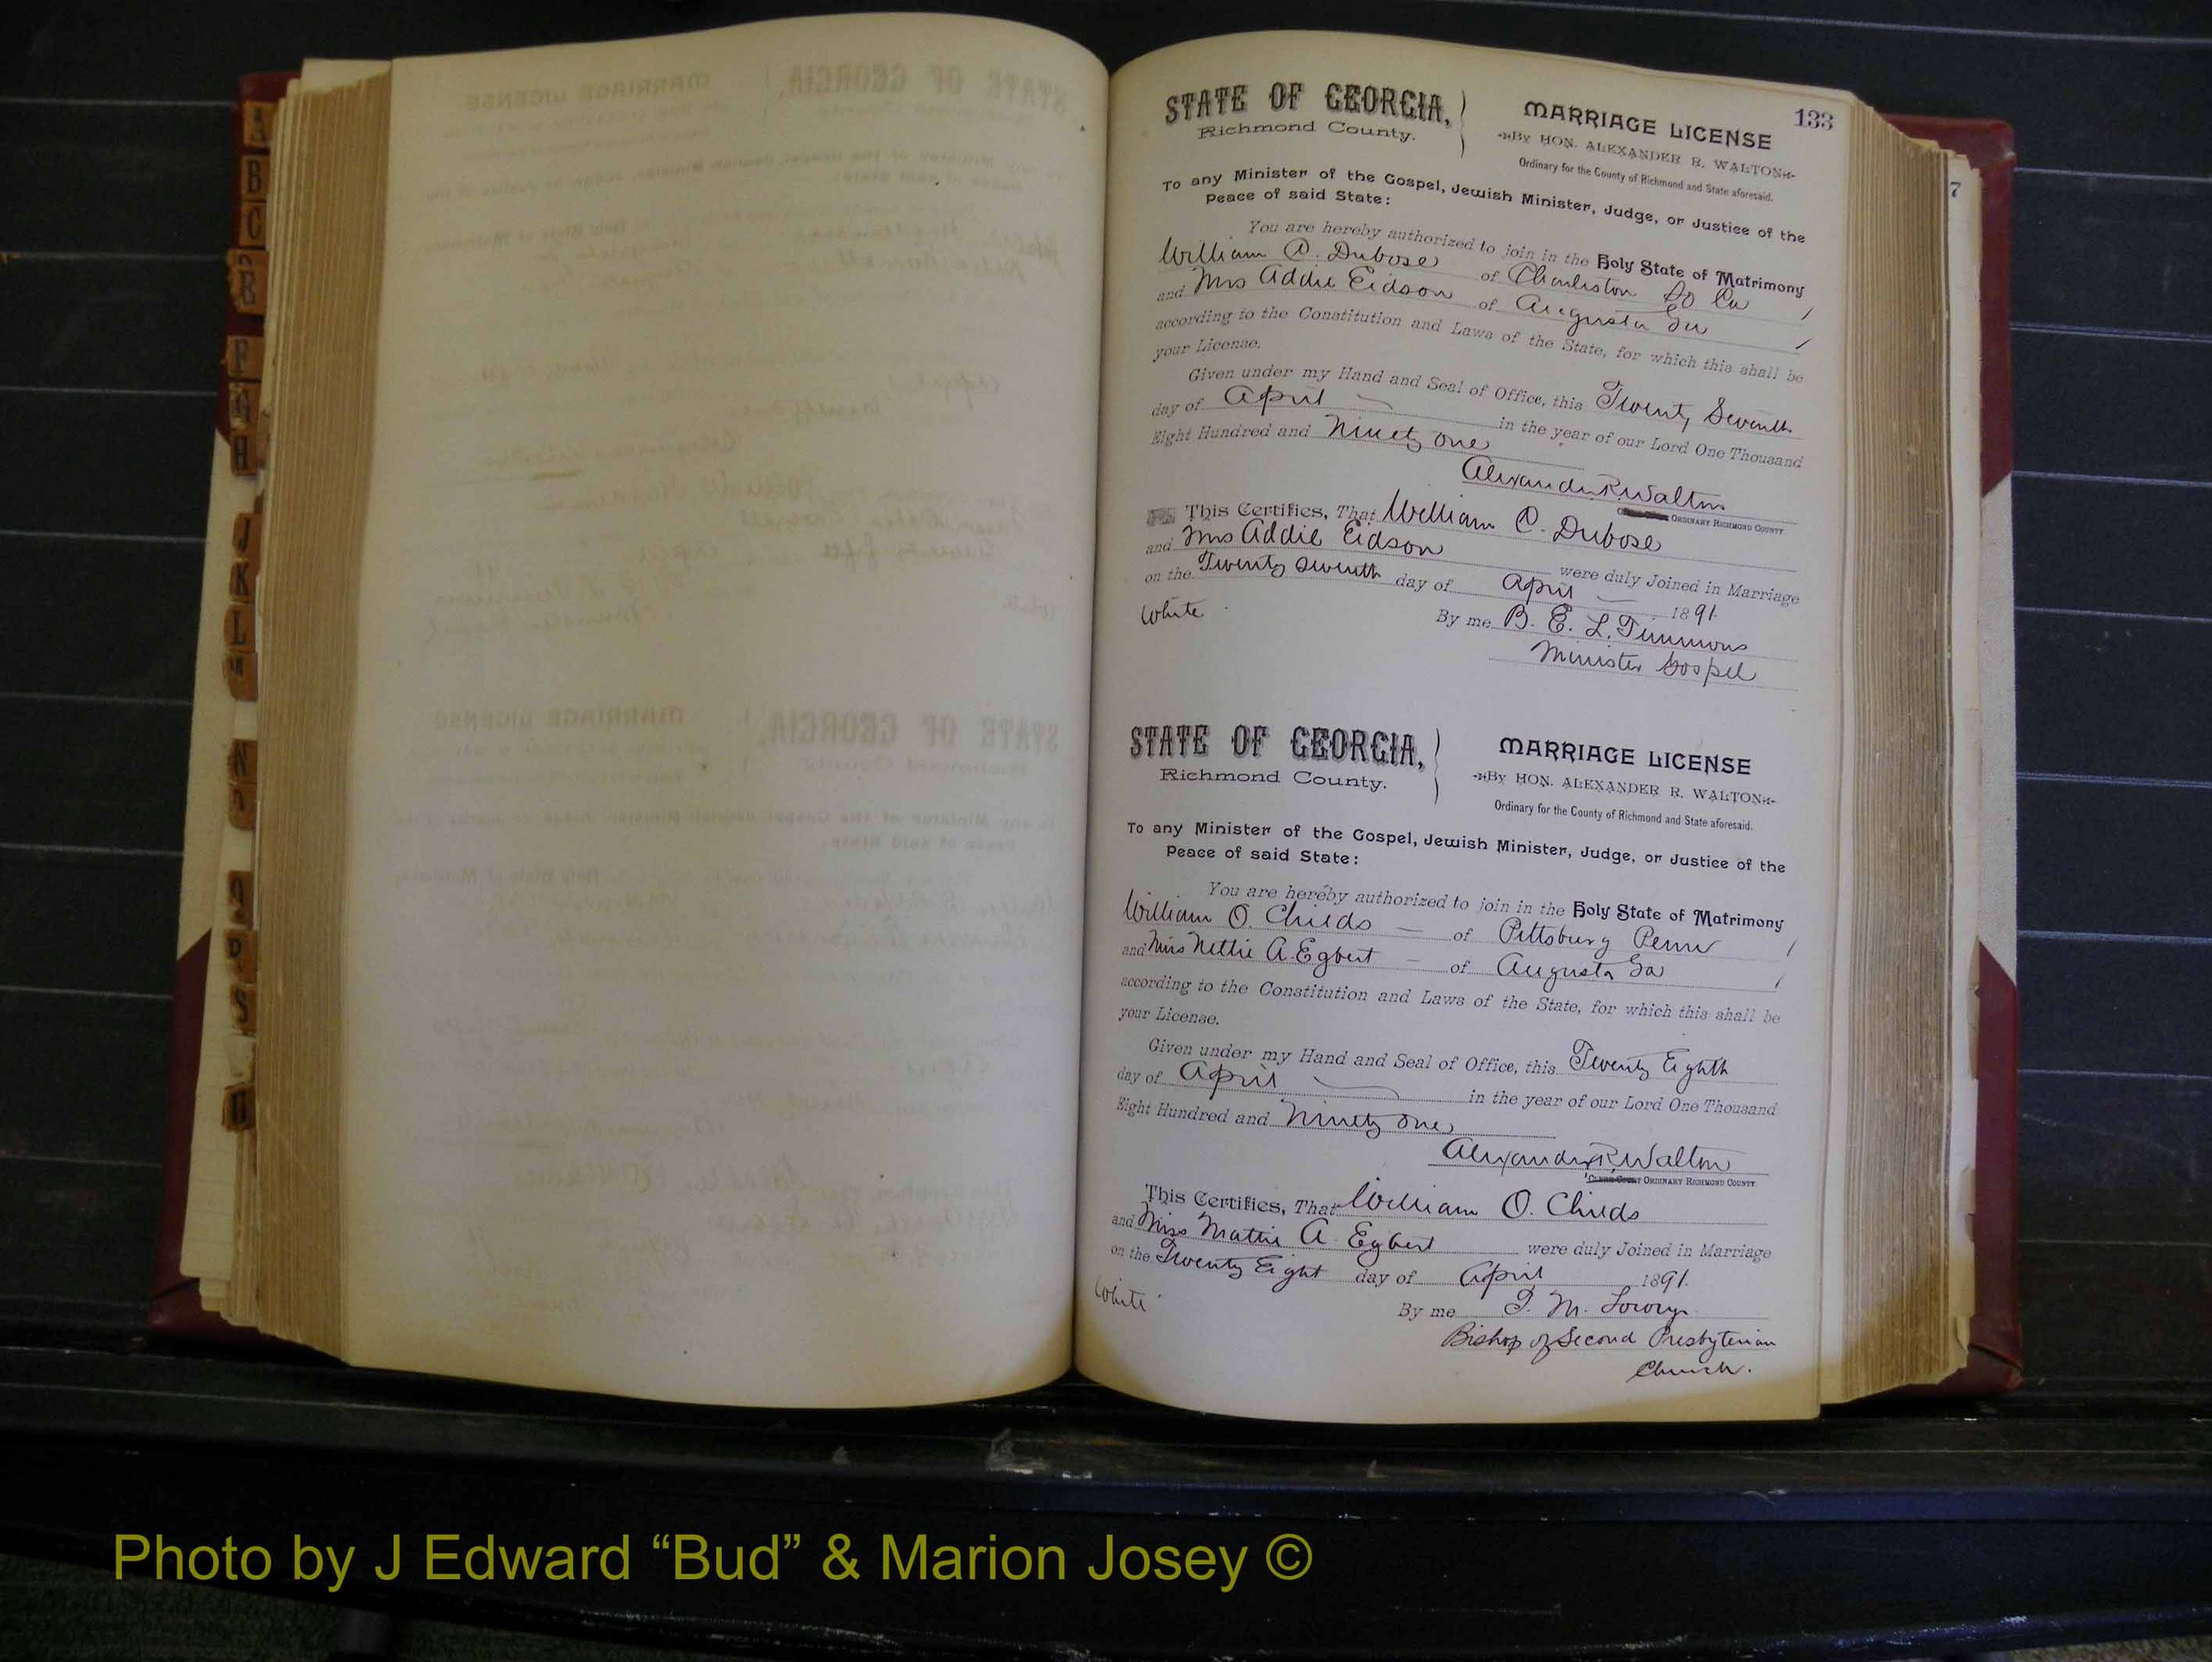 133
STATE OF GEORGIA,
Richmond County.
MARRIAGE LICENSE
By HON. ALEXANDER R. WALTON
Ordinary for the County of Richmond and State aforesaid.
To any Minister of the Gospel, Jewish Minister, Judge, or Justice of the
Peace of said State:
You are hereby authorized to join in the Holy State of Matrimony
William C. Dubose of Charleston So Ca
and Mrs Addie Eidson of Augusta Ga
according to the Constitution and Laws of the State, for which this shall be
your License.
Given under my Hand and Seal of Office, this Twenty Seventh
day of April in the year of our Lord One Thousand
Eight Hundred and Ninety One
Alexander R. Walton
ORDINARY RICHMOND COUNTY
This Certifies, That William C. Dubose
and Mrs Addie Eidson were duly Joined in Marriage
on the Twenty Seventh day of April 1891.
White
By me B. E. L. Timmons
Minister Gospel
STATE OF GEORGIA,
Richmond County.
MARRIAGE LICENSE
By HON. ALEXANDER R. WALTON
Ordinary for the County of Richmond and State aforesaid.
To any Minister of the Gospel, Jewish Minister, Judge, or Justice of the
Peace of said State:
You are hereby authorized to join in the Holy State of Matrimony
William O. Childs of Pittsburg Penn
and Miss Nettie A. Egbert of Augusta Ga
according to the Constitution and Laws of the State, for which this shall be
your License.
Given under my Hand and Seal of Office, this Twenty Eighth
day of April in the year of our Lord One Thousand
Eight Hundred and Ninety One
Alexander R. Walton
ORDINARY RICHMOND COUNTY.
This Certifies, That William O. Childs
and Miss Mattie A. Egbert were duly Joined in Marriage
on the Twenty Eight day of April 1891.
White
By me T. M. Lowry
Bishop of Second Presbyterian
Church.
7
A
B
C
E
F
G
H
J
K
L
M
N
O
P
S
Photo by J Edward “Bud” & Marion Josey ©